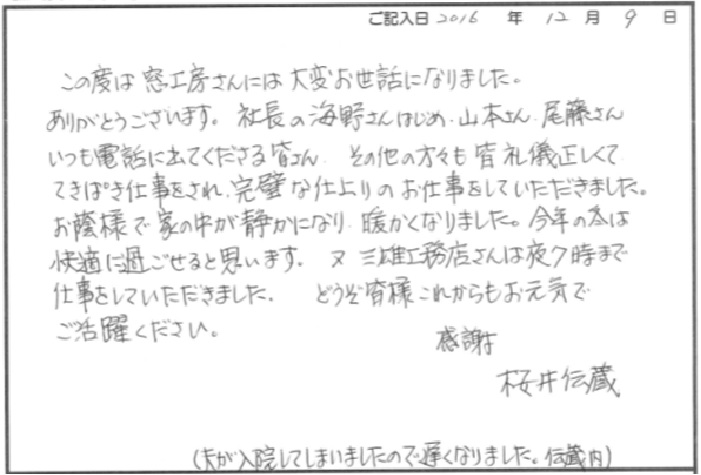 ご記入日 2016 年 12 月 9 日
この度は窓工房さんには大変お世話になりました。
ありがとうございます。社長の海野さんはじめ、山本さん、尾藤さん
いつも電話に出てくださる皆さん、その他の方々も皆礼儀正しくて
てきぱき仕事をされ、完璧な仕上りのお仕事をしていただきました。
お蔭様で家の中が静かになり、暖かくなりました。今年の冬は
快適に過ごせると思います。又三雄工務店さんは夜7時まで
仕事をしていただきました。どうぞ皆様これからもお元気で
ご活躍ください。
感謝
桜井伝蔵
(夫が入院してしまいましたので遅くなりました。伝蔵内)